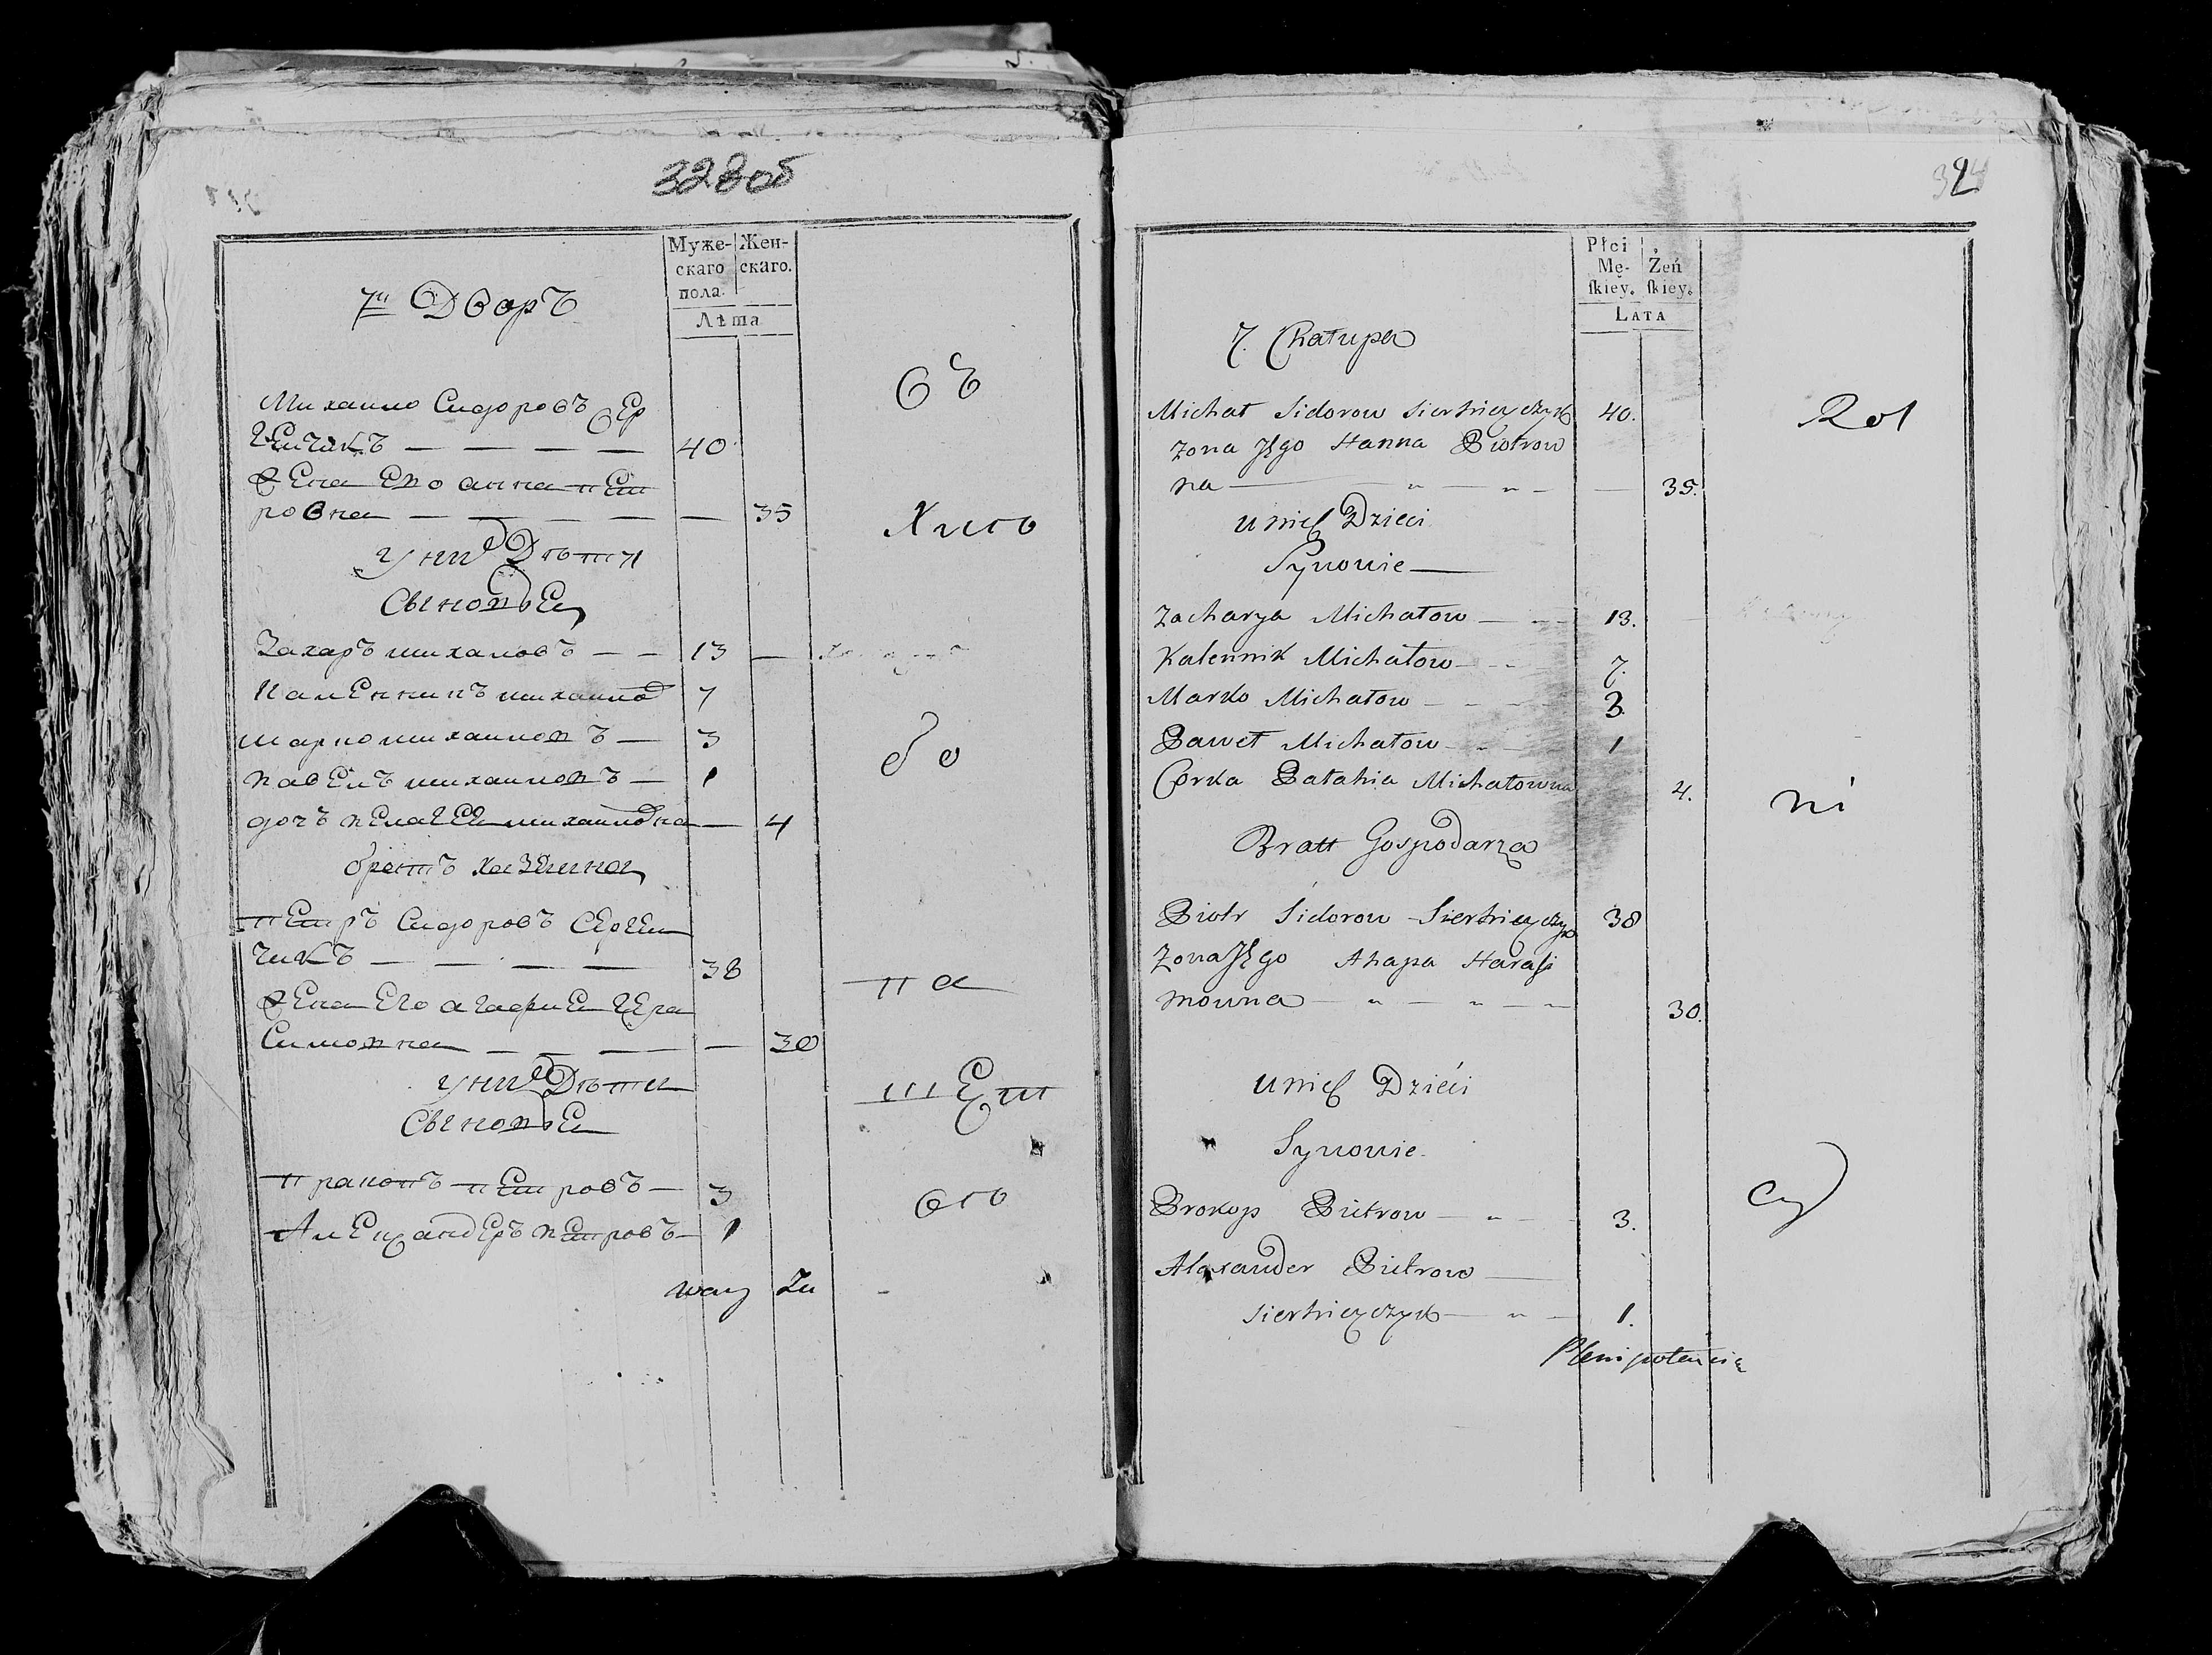 328об
Муже- Жен-
скаго скаго.
пола.
Лѣта
7й Дворъ
Михаило Сидоровъ Сер
гейчикъ — — — — 40
жена его анна пет
ровна — — — — — 35
у них Дѣти
Сыновья
Захаръ михаловъ — — 13 —
Каленникъ михаилов 7
марко михаиловъ — 3
павелъ михаиловъ — 1
дочъ пелагея михаиловна — 4
братъ хазяина
петръ Сидоровъ Сергей
чикъ — — — — 38
жена его агафия гера
симовна — — — — — 30
у них Дѣти
Сыновья
пракопъ петровъ — 3
Александеръ петровъ — 1
Съ
Хисо
до
па
тет
ого
Płci Żeń
Mę- skiey.
skiey.
LATA
7. Chałupa
Michał Sidorow Sierhieyczyk 40.
żona Jego Hanna Piotrow
na — „ — „ — — 35.
u nich Dzieci
Synowie —
Zacharya Michałow — — 13.
Kalennik Michałow — — 7.
Marko Michałow — — — 3
Paweł Michałow — — 1
Corka Pałahia Michałowna 4.
Bratt Gospodarza
Piotr Sidorow Sierhieyczyk 38
żona Jego Ahapa Harasi
mowna „ — „ — — 30.
u nich Dzieci
Synowie.
Prokop Pietrow — „ — 3.
Alexander Pietrow —
Sierhieyczyk — „ — 1.
Plenipotencią
Rol
ni
cy